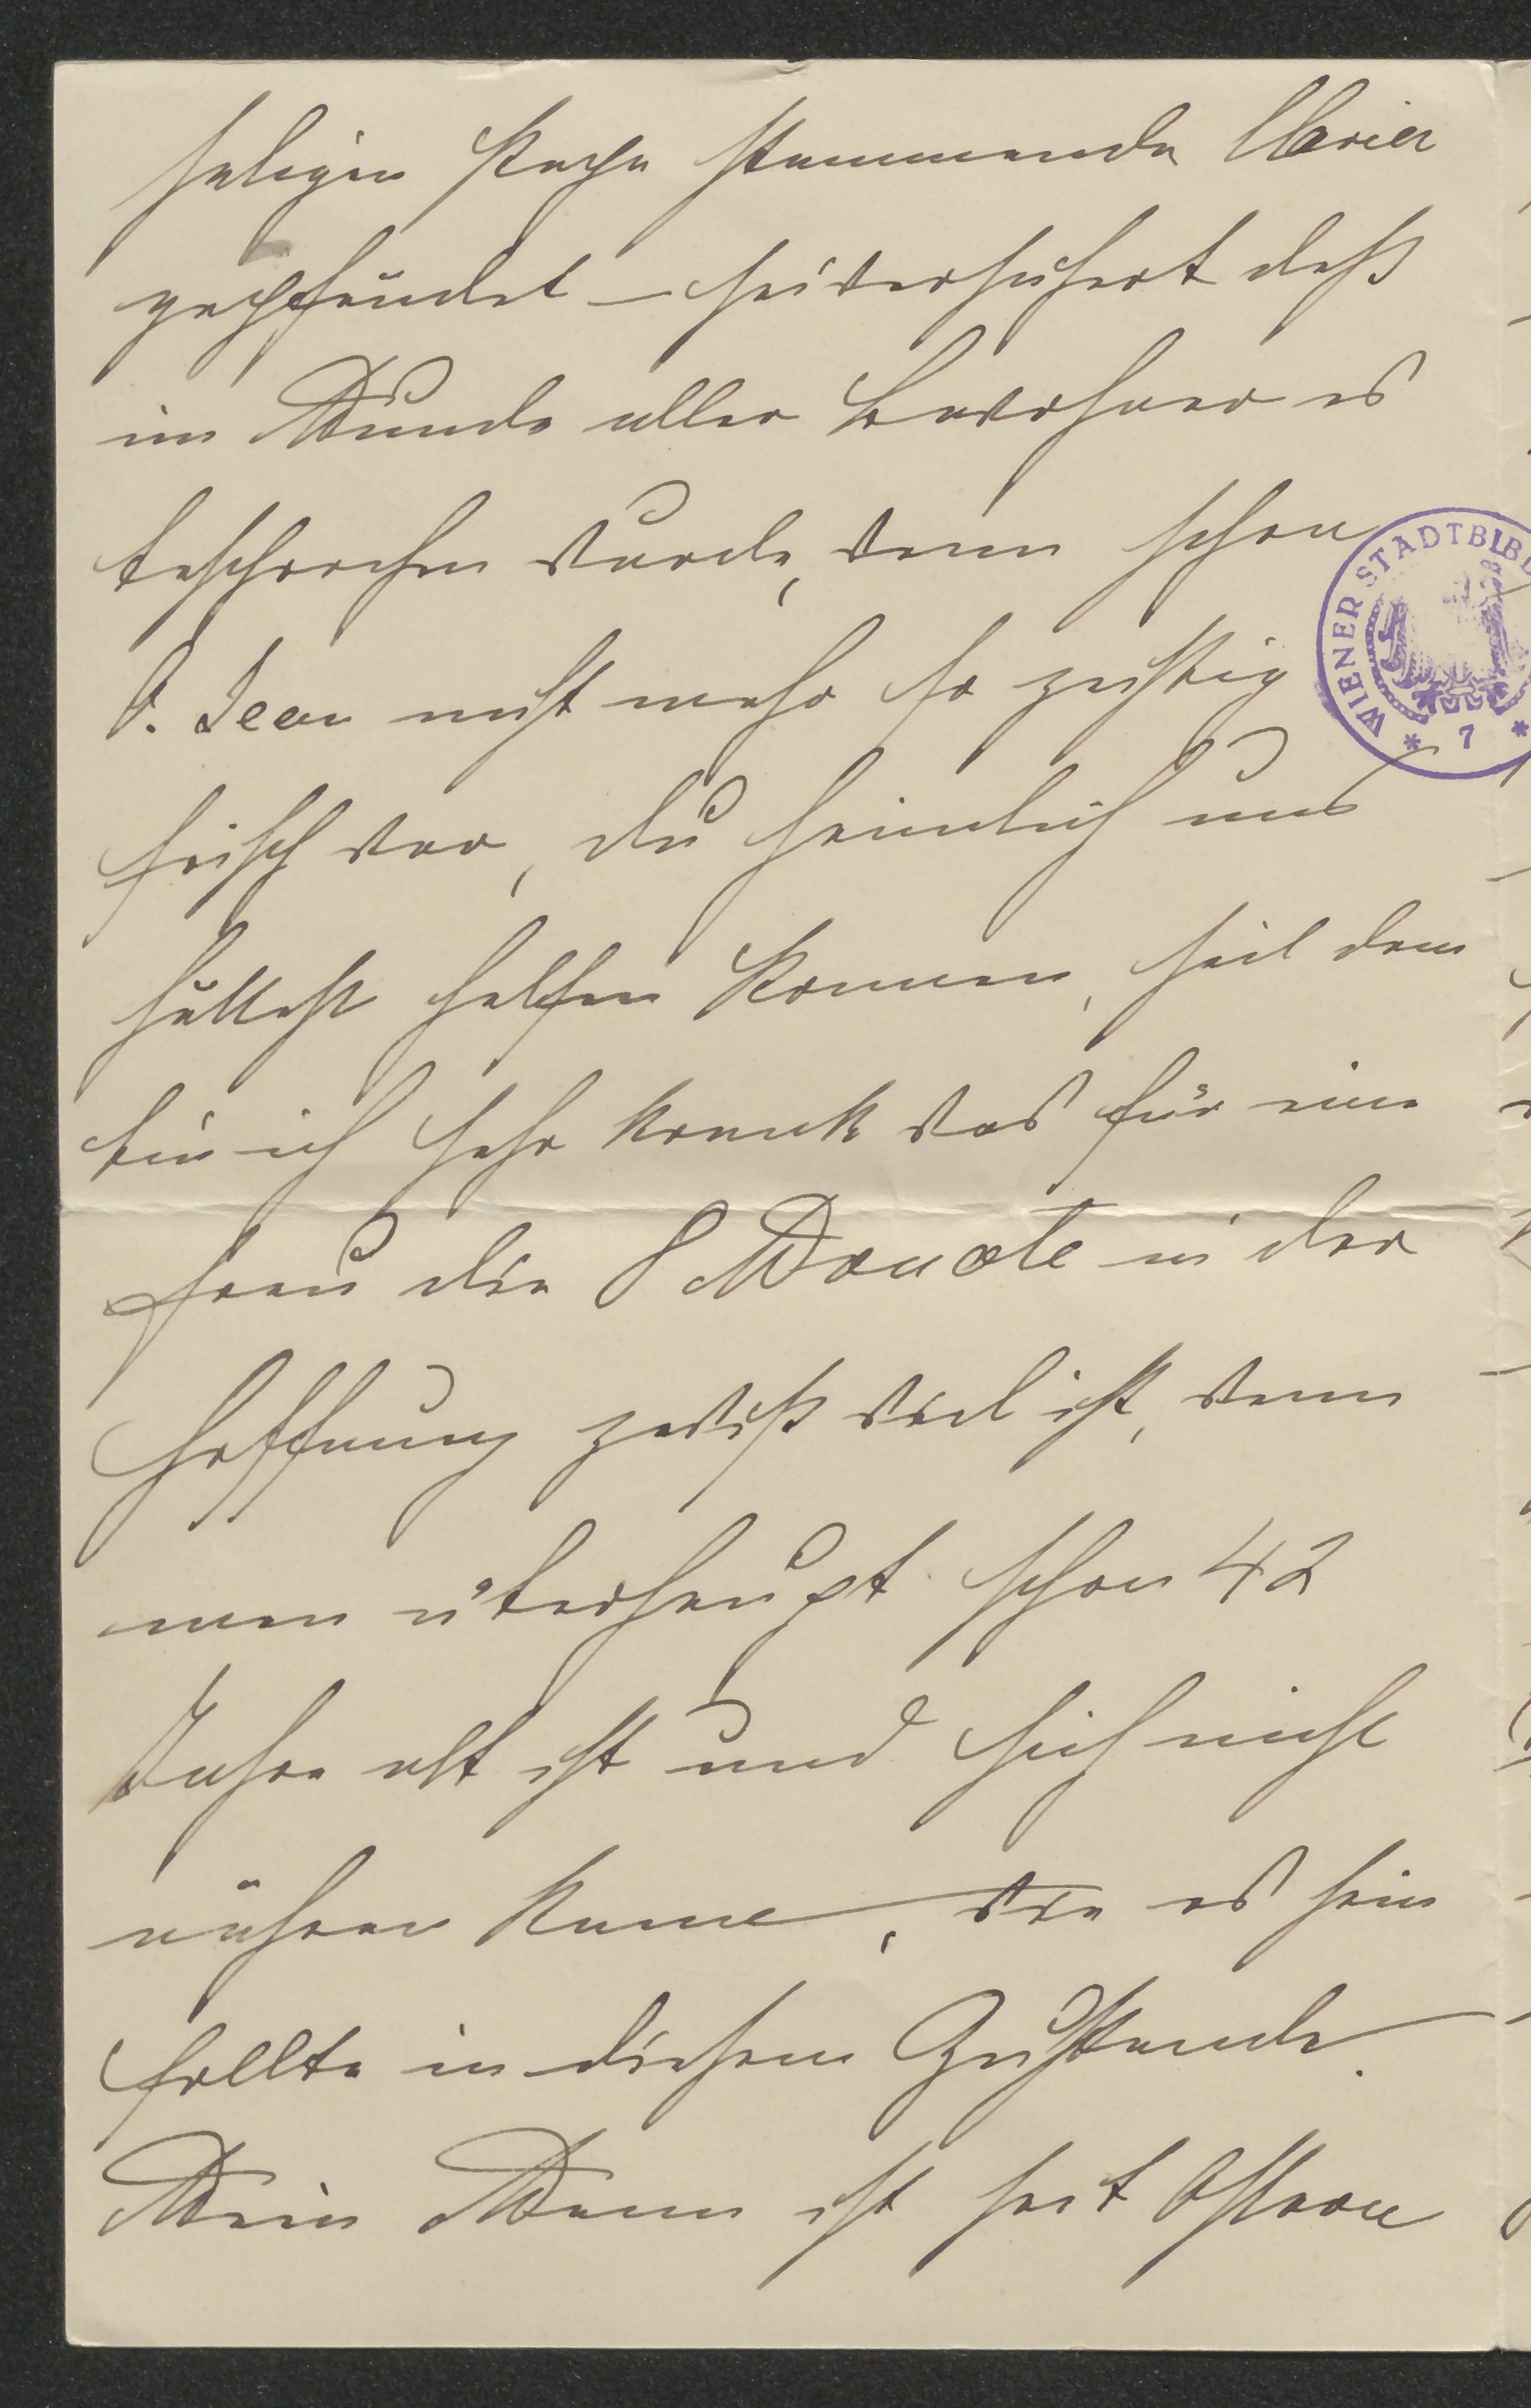 seligen Papa stammende Clavier
gepfändet – so daß
im Munde aller Bewohner es
besprochen wurde, wenn schon
O. Jean nicht mehr so geistig
frisch war, du heimlich uns
hättest helfen können, seit dem
bin ich sehr krank was für eine
Frau die 8 Monate in der
Hoffnung gewiß viel ist, wenn
man überhaupt schon 42
Jahre alt ist und sich nicht
nähren kann, wie es sein
sollte in diesem Zustande.
Mein Mann ist seit Ostern
WIENER STADTBIBL
* 7 *